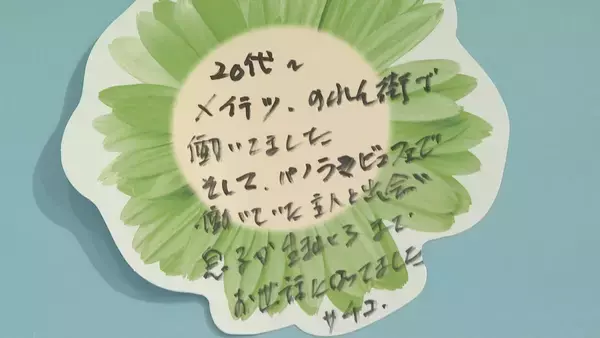 20代〜
メイテツ、のれん街で
働いてました
そして、パノラマビュッフェで
働いていた主人と出会い
息子が生まれるまで、
お世話になってました
サイコ.